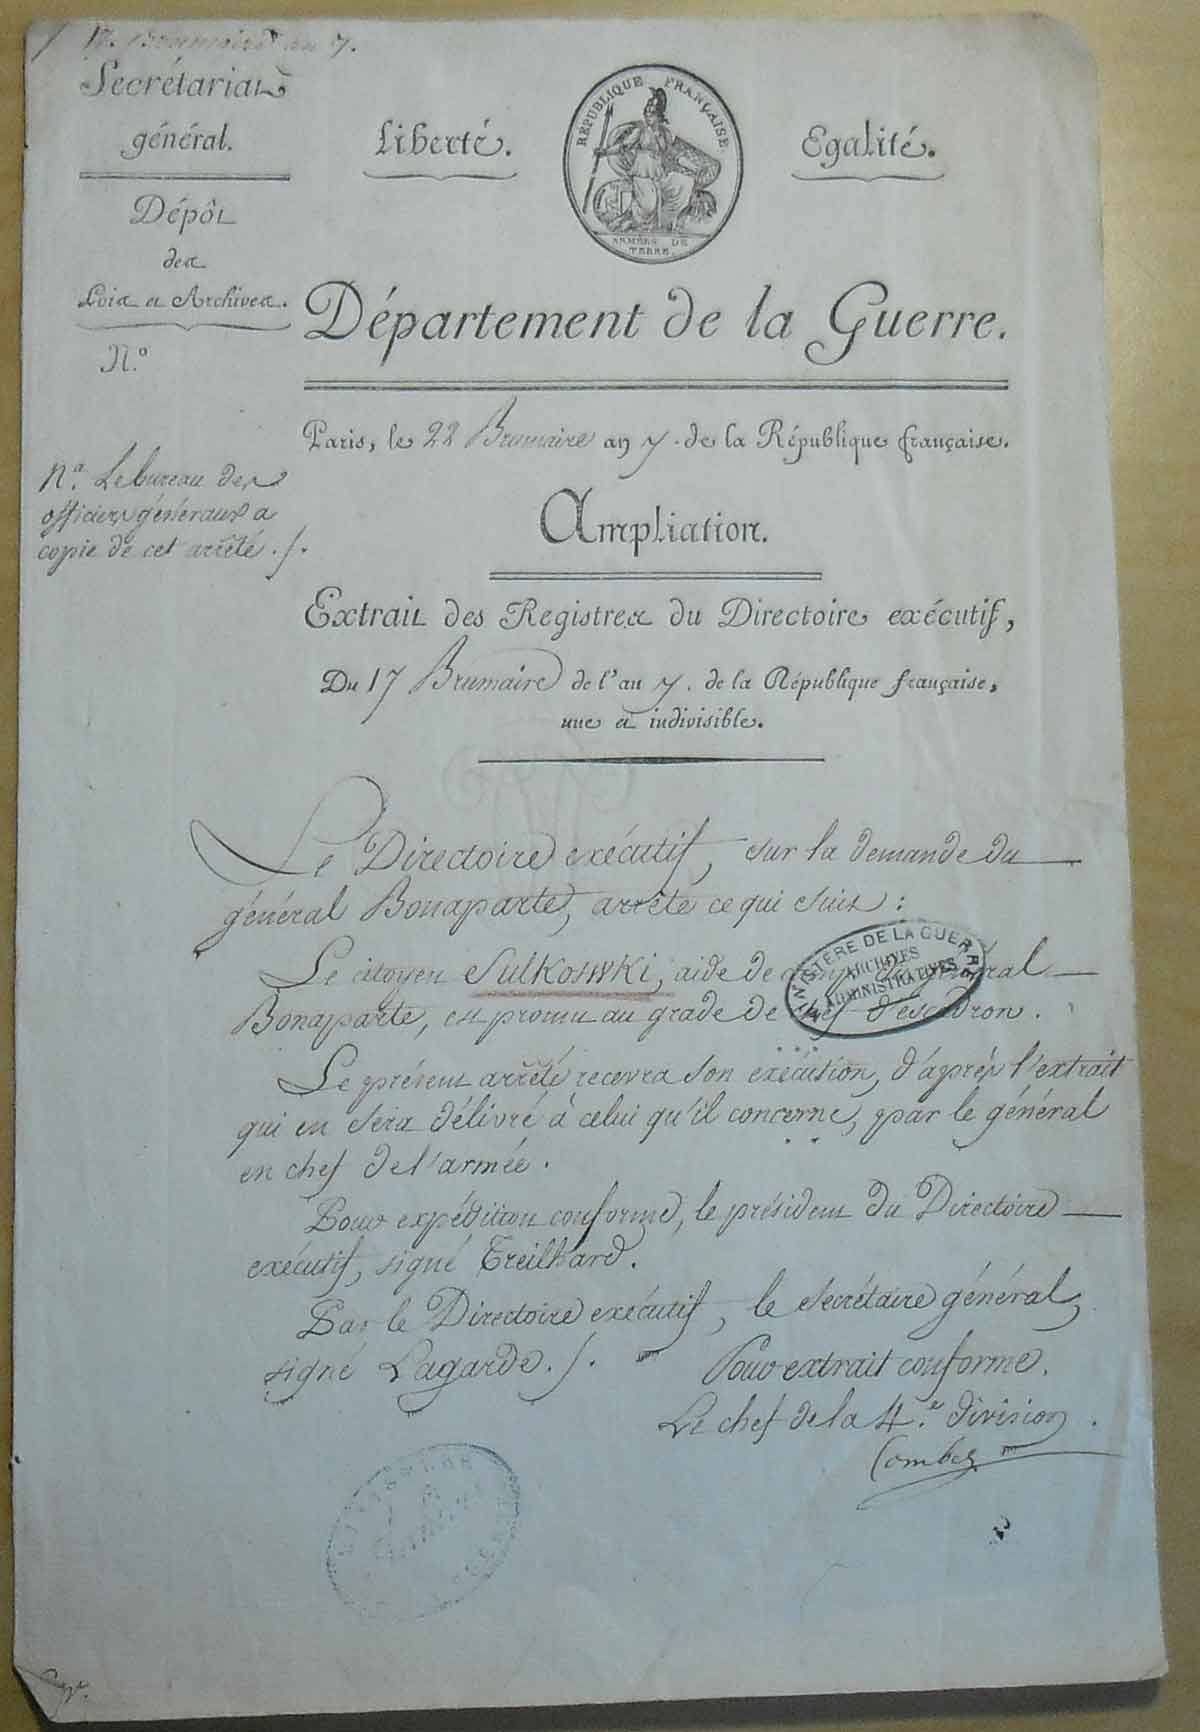 17. Brumaire an 7.
Secrétariat
général.
Dépôt
des
Lois et Archives.
N.º
Liberté.
RÉPUBLIQUE FRANÇAISE.
ARMÉES DE
TERRE.
Egalité.
Département de la Guerre.
Paris, le 28 Brumaire an 7. de la République française.
Nª. Le bureau des
officiers généraux a
copie de cet arrêté ./.
Ampliation.
Extrait des Registres du Directoire exécutif,
Du 17 Brumaire de l'an 7. de la République française,
une et indivisible.
Le Directoire exécutif, sur la demande du
général Bonaparte, arrête ce qui suit :
Le citoyen Sulkowki, aide de camp du général
Bonaparte, est promu au grade de chef d'escadron.
MINISTÈRE DE LA GUERRE
ARCHIVES
ADMINISTRATIVES
Le présent arrêté recevra son exécution, d'après l'extrait
qui en sera délivré à celui qu'il concerne, par le général
en chef de l'armée.
Pour expédition conforme, le président du Directoire
exécutif, signé Treilhard.
Par le Directoire exécutif, le secrétaire général,
signé Lagarde ./.
Pour extrait conforme.
Le chef de la 4.e division.
Combes